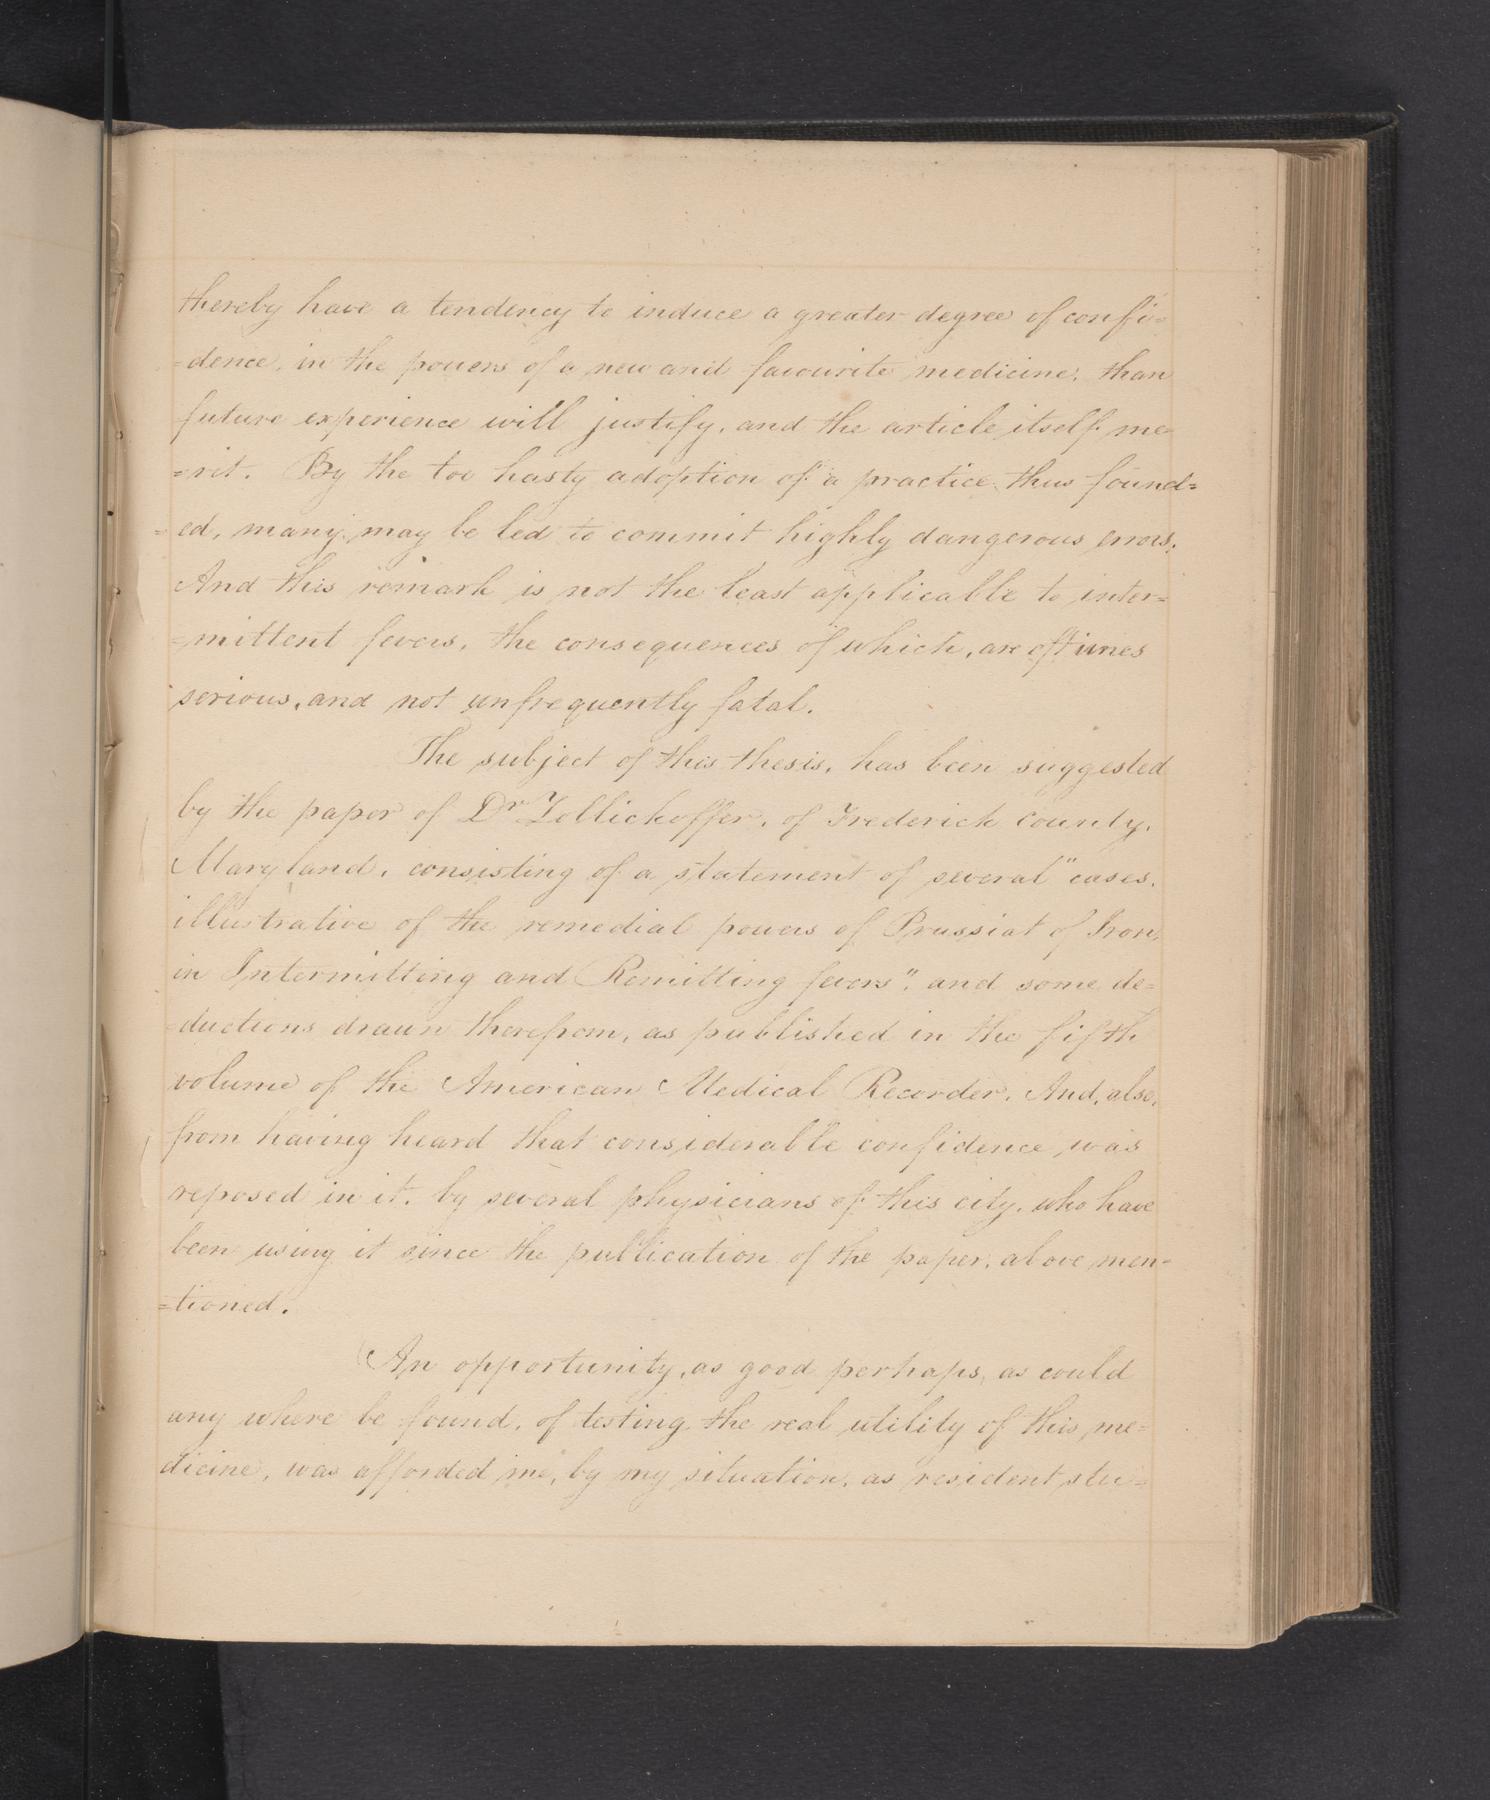 thereby have a tendency to induce a greater degree of confi=
=dence, in the powers of a new and favourite medicine, than
future experience will justify, and the article itself me=
=rit. By the too hasty adoption of a practice thus found=
=ed, many may be led to commit highly dangerous errors.
And this remark is not the least applicable to inter=
=mittent fevers, the consequences of which, are ofttimes
serious, and not unfrequently fatal.
The subject of this thesis, has been suggested
by the paper of Dr Zollichoffer, of Frederick county,
Maryland, consisting of a statement of several "cases,
illustrative of the remedial powers of Prussiat of Iron,
in Intermitting and Remitting fevers", and some de=
=ductions drawn therefrom, as published in the fifth
volume of the American Medical Recorder. And, also,
from having heard that considerable confidence was
reposed in it, by several physicians of this city, who have
been using it since the publication of the paper, above men=
=tioned.
An opportunity, as good perhaps, as could
any where be found, of testing the real utility of this me=
dicine, was afforded me, by my situation, as resident stu=